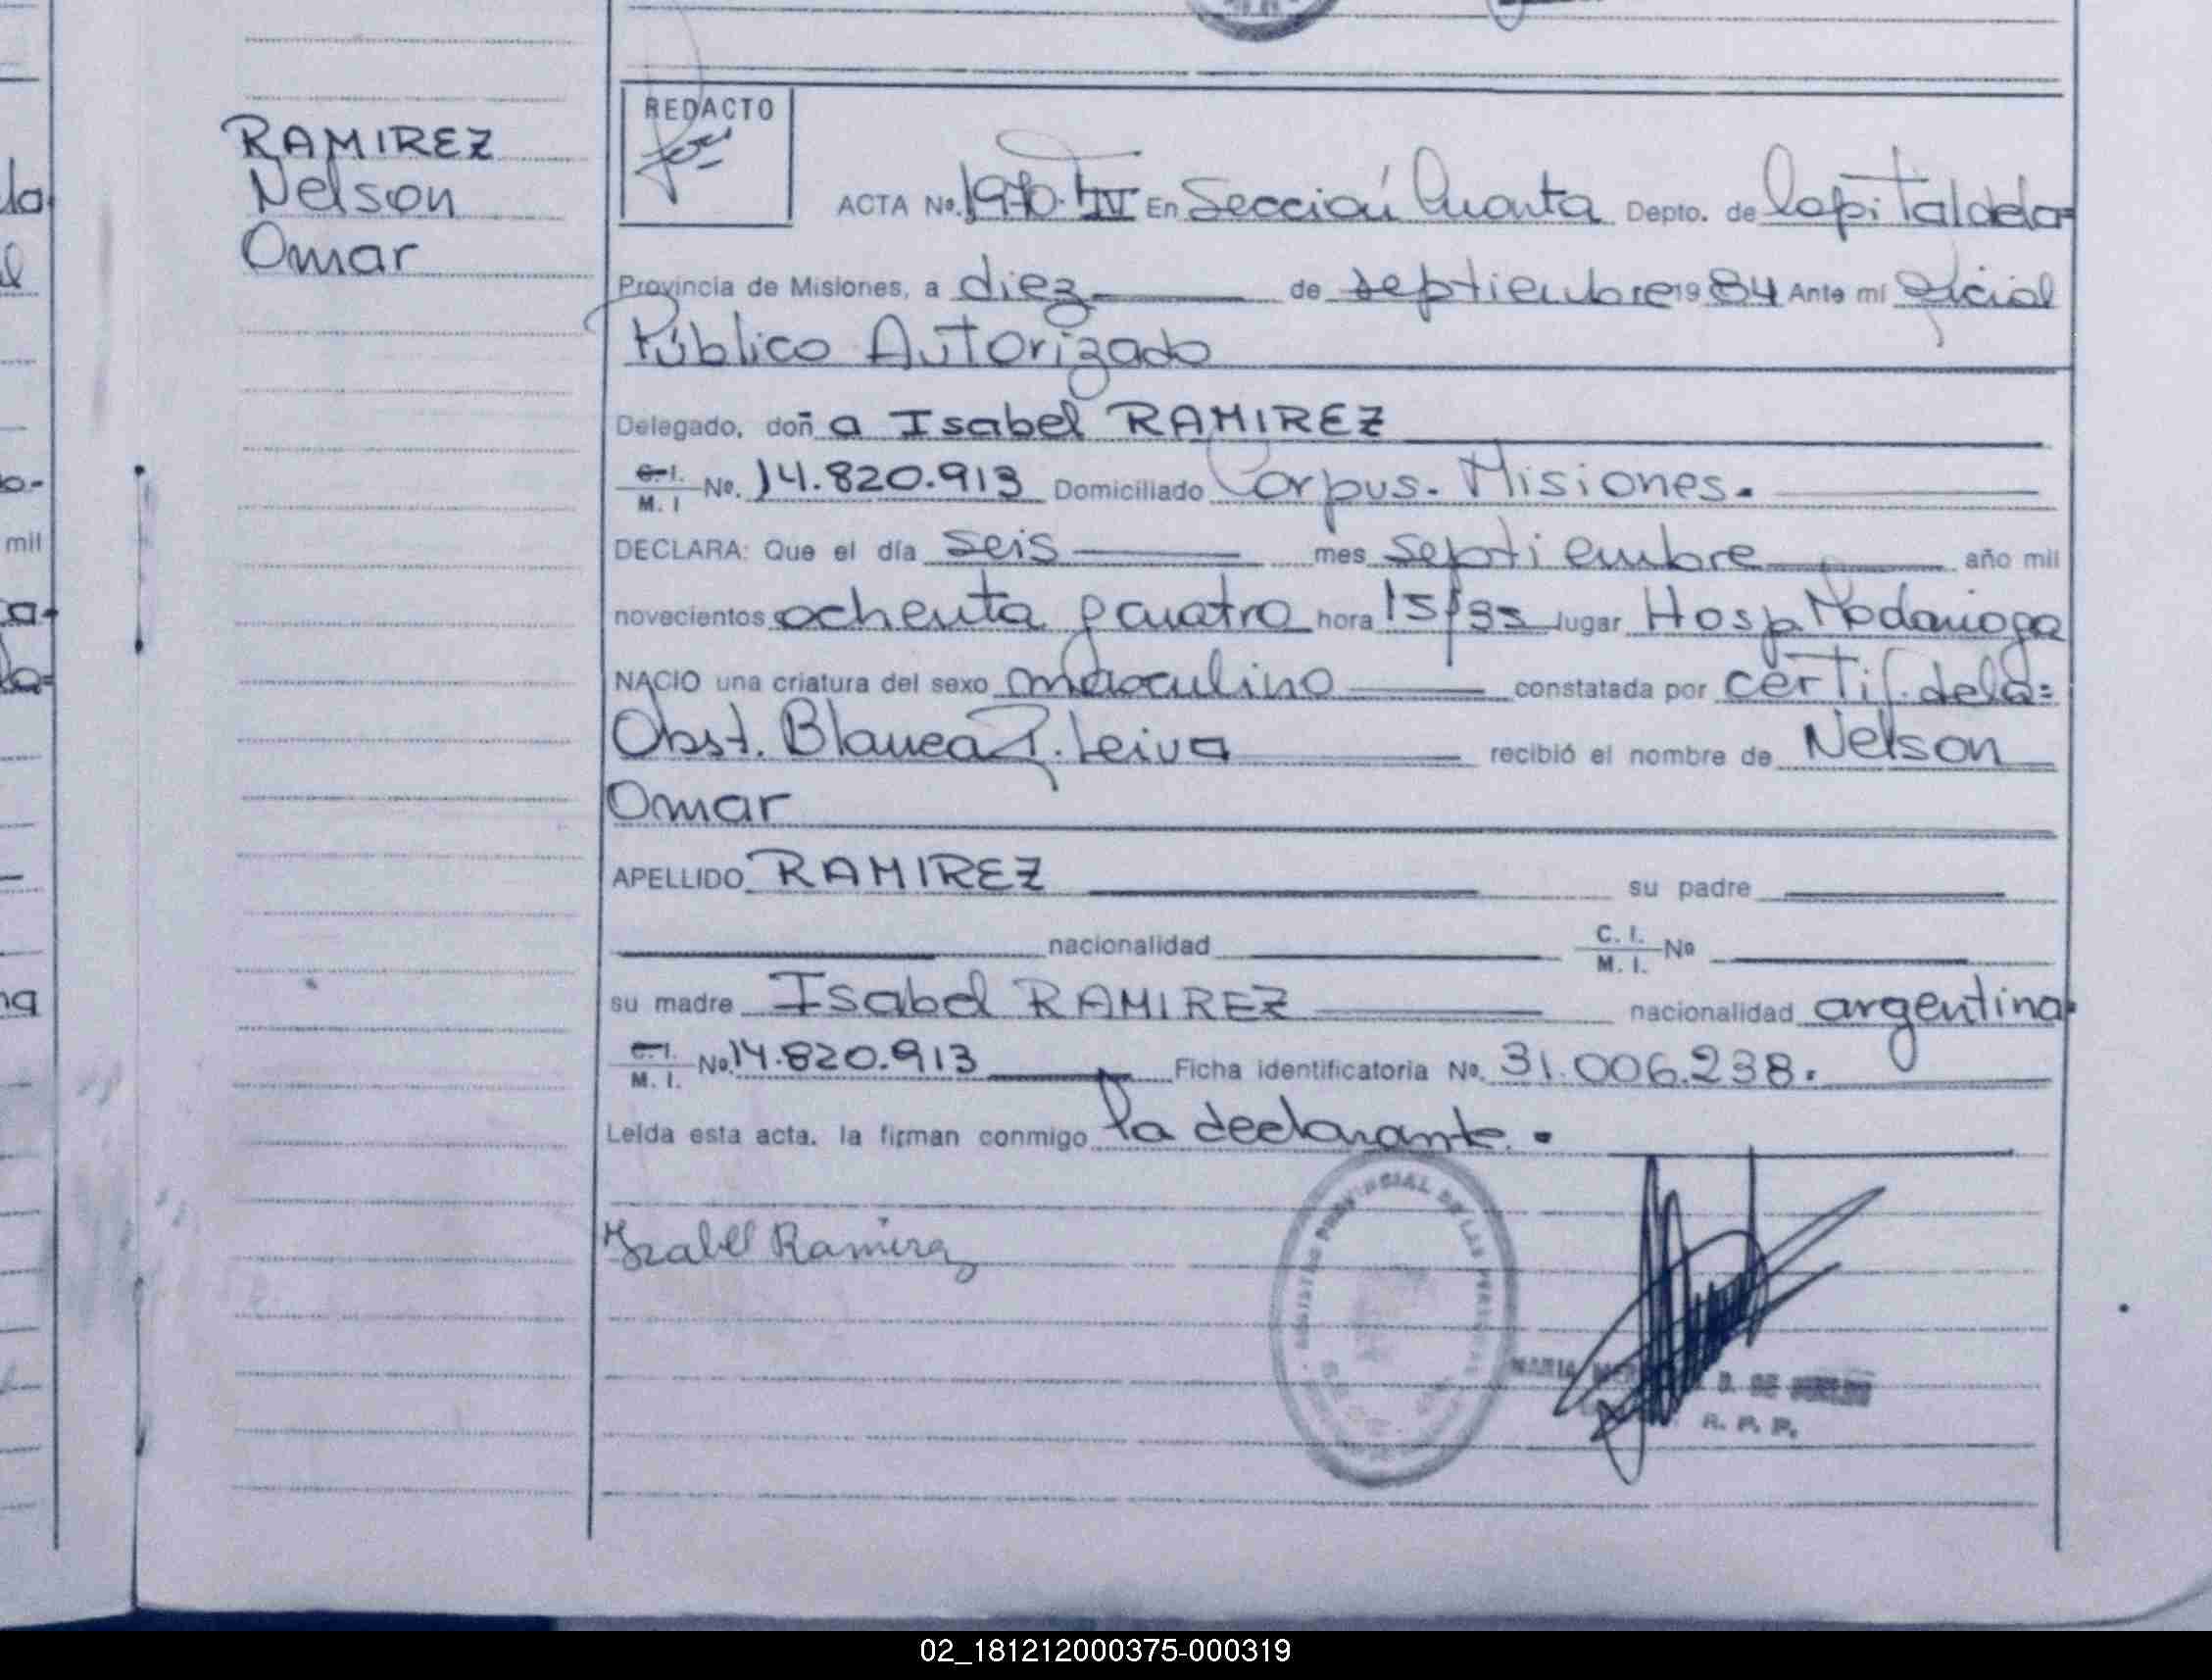 RAMIREZ
Nelson
Omar
REDACTO
ACTA Nº. 1970. IV En Sección Cuarta Depto. de Capital de la=
Provincia de Misiones, a diez de septiembre 1984 Ante mí Oficial
Público Autorizado
Delegado, doña Isabel RAMIREZ
C. I. / M. I Nº. 14.820.913 Domiciliado Corpus - Misiones.
DECLARA: Que el día seis mes septiembre año mil
novecientos ochenta y cuatro hora 15/35 lugar Hosp. Madariaga
NACIO una criatura del sexo masculino constatada por certif. de la=
Obst. Blanca R. Leiva recibió el nombre de Nelson
Omar
APELLIDO RAMIREZ su padre
nacionalidad C. I. / M. I. Nº
su madre Isabel RAMIREZ nacionalidad argentina
C. I. / M. I. Nº. 14.820.913 Ficha identificatoria Nº. 31.006.238.
Leída esta acta, la firman conmigo la declarante.
Izabel Ramirez
REGISTRO PROVINCIAL DE LAS PERSONAS
MARIA B. DE
R. P. P.
mil
02_181212000375-000319